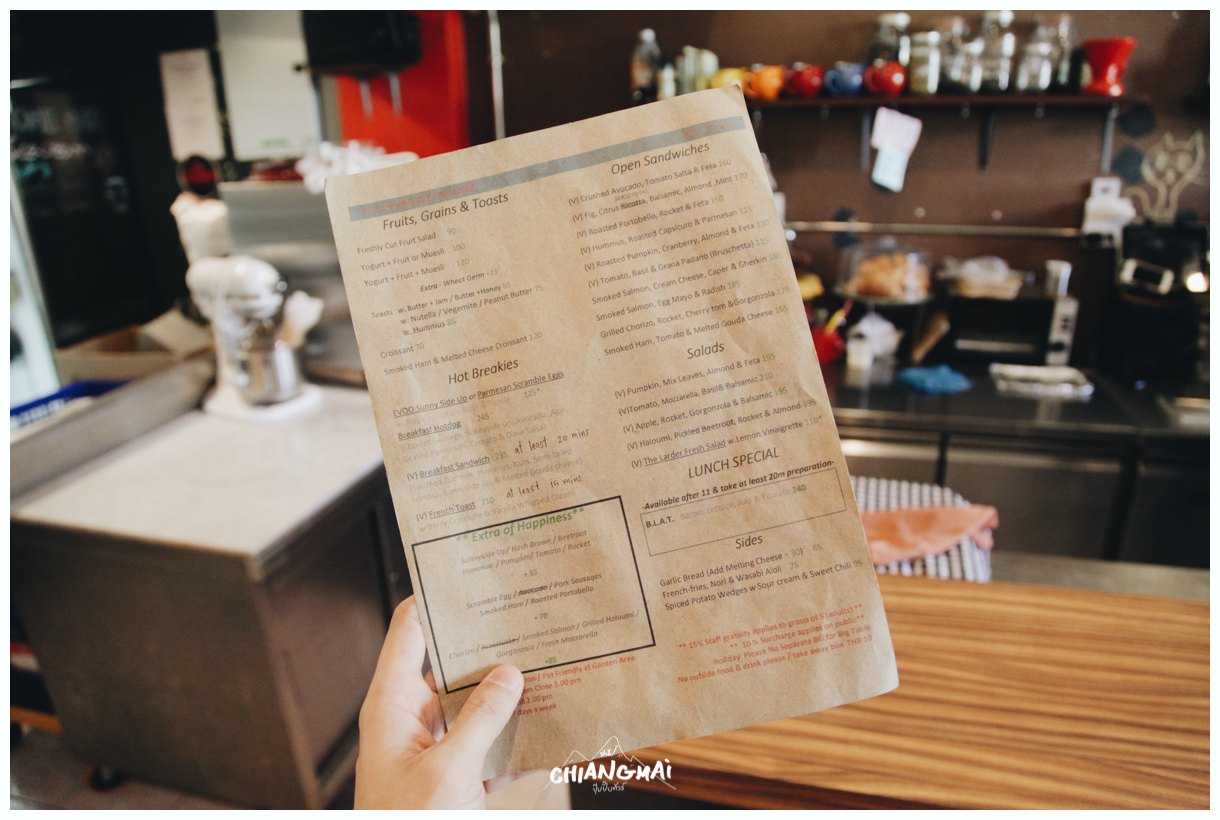 Fruits, Grains & Toasts
Freshly Cut Fruit Salad 90
Yogurt + Fruit or Muesli 100
Yogurt + Fruit + Muesli 120
Extra - Wheat Germ +15
Toasts w. Butter + Jam / Butter +Honey 65
w. Nutella / Vegemite / Peanut Butter 75
w. Hummus 85
Croissant 70
Smoked Ham & Melted Cheese Croissant 120
Hot Breakies
EVOO Sunny Side Up or Parmesan Scramble Eggs
125*
Breakfast Hotdog 245
(Chorizo Sausage, Sunnyside up, Avocado, Aioli,
Grated Parmesan, Tomato & Salsa)
(V) Breakfast Sandwich 235 at least 20 mins
Hummus, Nuts, Semi Dried
Tomato, Sunnyside up, & Melted Gouda cheese)
(V) French Toast 210 at least 15 mins
w Berry Compote & Vanilla Whipped Cream
** Extra of Happiness**
Sunnyside Up/ Hash Brown / Beetroot
Hummus / Pumpkin/ Tomato / Rocket
+55
Scramble Egg / Avocado / Pork Sausages
Smoked Ham / Roasted Portobello
+70
Chorizo / Prosciutto / Smoked Salmon / Grilled Haloumi /
Gorgonzola / Fresh Mozzarella
+85
/ Pet Friendly at Garden Area
Close 3.00 pm
2.00 pm
days a week
Open Sandwiches
(V) Crushed Avocado, Tomato Salsa & Feta 160
(V) Fig, Citrus Ricotta, Balsamic, Almond ,Mint 170
(V) Roasted Portobello, Rocket & Feta
(V) Hummus, Roasted Capsicum & Parmesan 135
(V) Roasted Pumpkin, Cranberry, Almond & Feta 130
(V) Tomato, Basil & Grana Padano (Bruschetta) 115
Smoked Salmon, Cream Cheese, Caper & Gherkin 185
Smoked Salmon, Egg Mayo & Radish 185
Grilled Chorizo, Rocket, Cherry tom &Gorgonzola 175
Smoked Ham, Tomato & Melted Gouda Cheese 155
Salads
(V) Pumpkin, Mix Leaves, Almond & Feta 195
(V)Tomato, Mozzarella, Basil& Balsamic 210
(V) Apple, Rocket, Gorgonzola & Balsamic 195
(V) Haloumi, Pickled Beetroot, Rocket & Almond 195
(V) The Larder Fresh Salad w Lemon Vinaigrette
LUNCH SPECIAL
-Available after 11 & take at least 20m preparation-
B.L.A.T. Bacon, Lettuce, Avo & Tomato 240
Sides
Garlic Bread (Add Melting Cheese + 30) 65
French-fries, Nori & Wasabi Aioli 75
Spiced Potato Wedges w Sour cream & Sweet Chili 95
** 15% Staff gratuity applies to group of 5 (adults) **
** 10 % Surcharge applies on public**
holiday Please No Separate Bill for Big Table
No outside food & drink please / take away box THB 10
CHIANGMAI